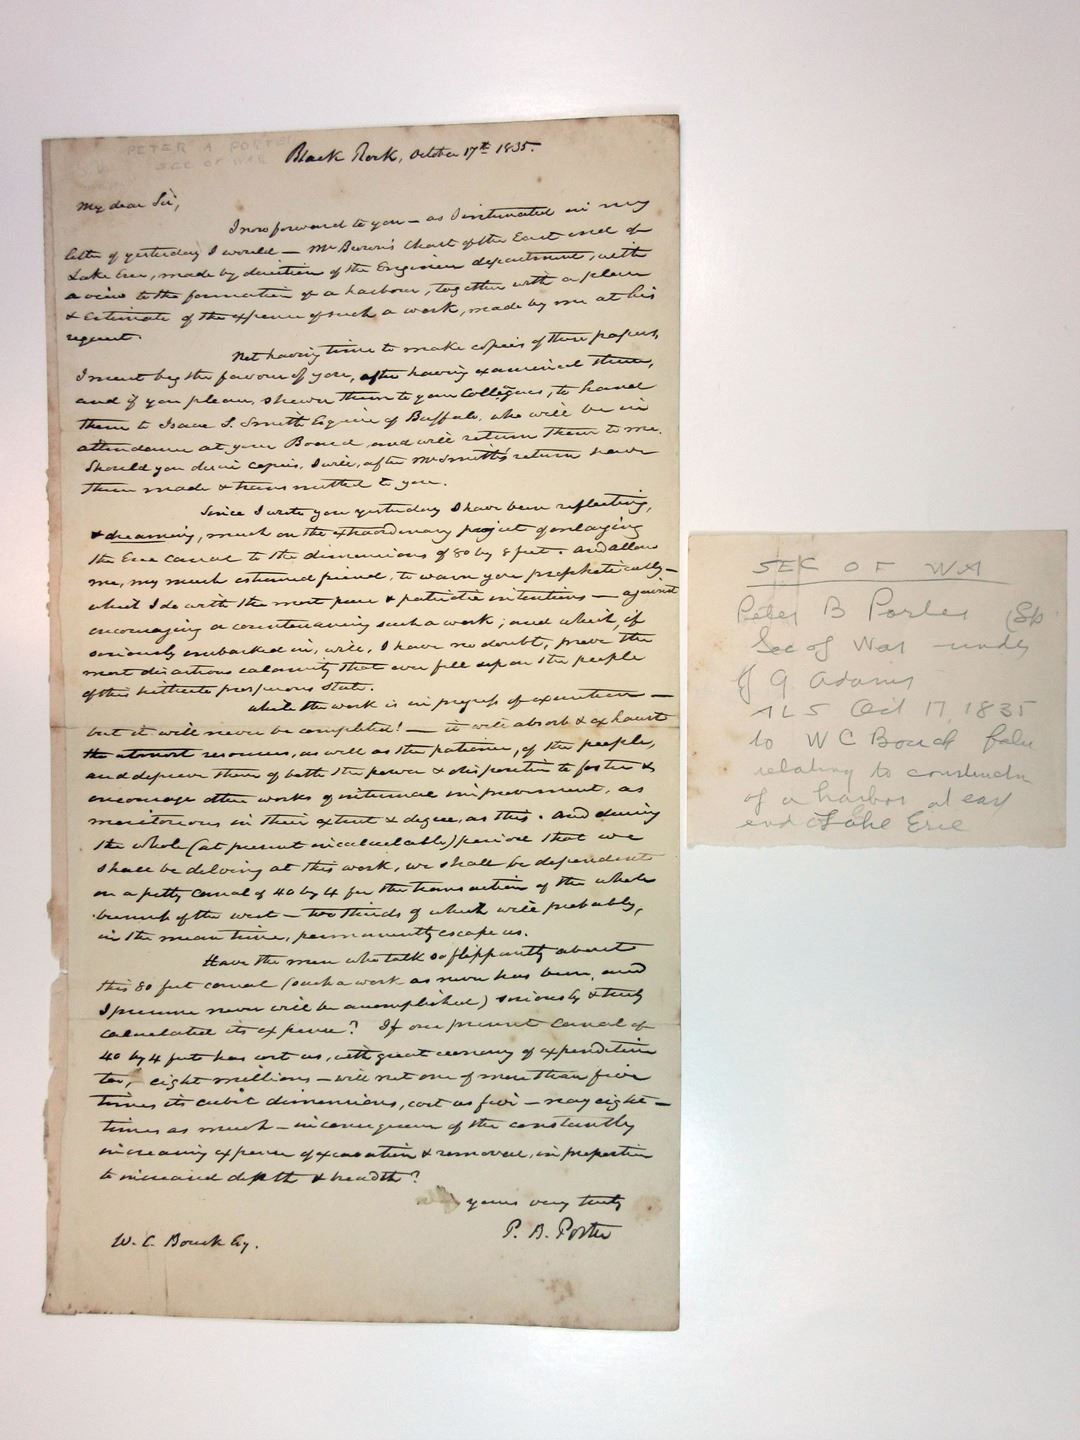 PETER A PORTER
SEC OF WAR
Black Rock, October 17th 1835.
My dear Sir,
I now forward to you — as I intimated in my
letter of yesterday I would — Mr Brown's Chart of the East end of
Lake Erie, made by direction of the Engineer department, with
a view to the formation of a harbour, together with a plan
& Estimate of the expense of such a work, made by me at his
request.
Not having time to make copies of these papers,
I must beg the favour of you, after having examined them,
and if you please, shewn them to your Collegues, to hand
them to Isaac S. Smith Esquire of Buffalo, who will be in
attendance at your Board, and will return them to me.
Should you desire copies, I will, after Mr Smith's return have
them made & transmitted to you.
Since I wrote you yesterday I have been reflecting,
& dreaming, much on the extraordinary project of enlarging
the Erie Canal to the dimensions of 80 by 8 feet. And allow
me, my much esteemed friend, to warn you prophetically —
which I do with the most pure & patriotic intentions — against
encouraging or countenancing such a work; and which, if
seriously embarked in, will, I have no doubt, prove the
most disastrous calamity that ever fell upon the people
of this hitherto prosperous State.
While the work is in progress of execution —
but it will never be completed! — it will absorb & exhaust
the utmost resources, as well as the patience, of the people,
and deprive them of both the power & disposition to foster &
encourage other works of internal improvement, as
meritorious in their extent & degree, as this. And during
the whole (at present incalculable) period that we
shall be delving at this work, we shall be dependent
on a petty canal of 40 by 4 for the transaction of the whole
business of the west — two thirds of which will probably,
in the mean time, permanently escape us.
Have the men who talk so flippantly about
this 80 feet canal (such a work as never has been, and
I presume never will be accomplished) seriously & truly
calculated its expense? If our present Canal of
40 by 4 feet has cost us, with great economy of expenditure
too, eight millions — will not one of more than five
times its cubic dimensions, cost us five — nay eight —
times as much — in consequence of the constantly
increasing expense of excavation & removal, in proportion
to increased depth & breadth?
yours very truly
P. B. Porter
W. C. Bouck Esq.
SEC OF WA
Peter B Porter (Sp
Sec of War under
J Q Adams
ALS Oct 17, 1835
to W C Bouck
relating to construction
of a harbor at east
end of Lake Erie